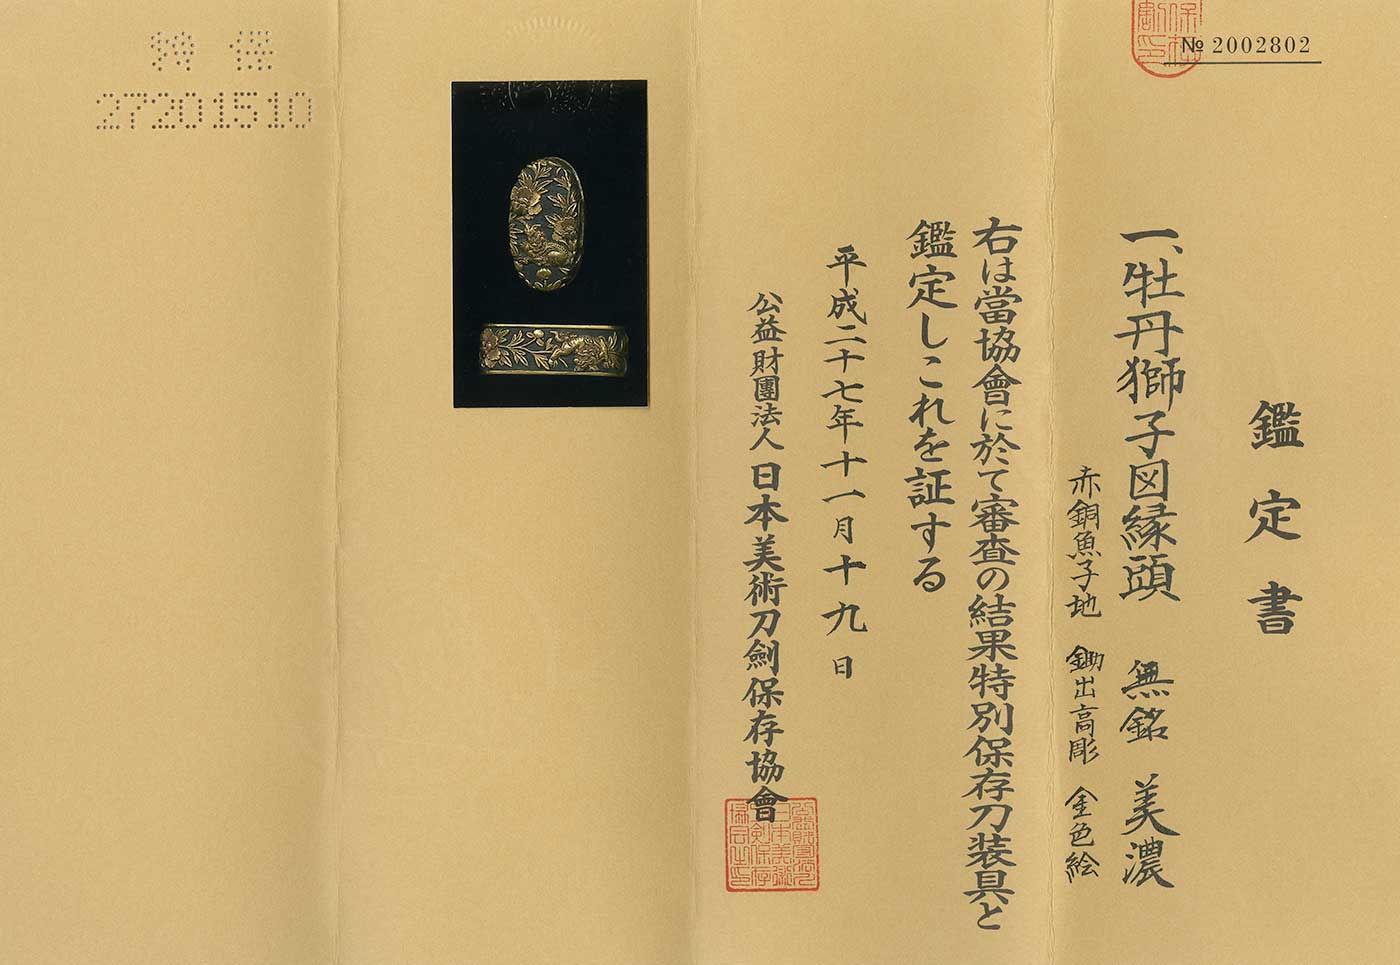 № 2002802
鑑定書
一、牡丹獅子図縁頭　無銘　美濃
赤銅魚子地　鋤出高彫　金色絵
右は當協會に於て審査の結果特別保存刀装具と
鑑定しこれを証する
平成二十七年十一月十九日
公益財團法人日本美術刀劍保存協會
特保
27201510